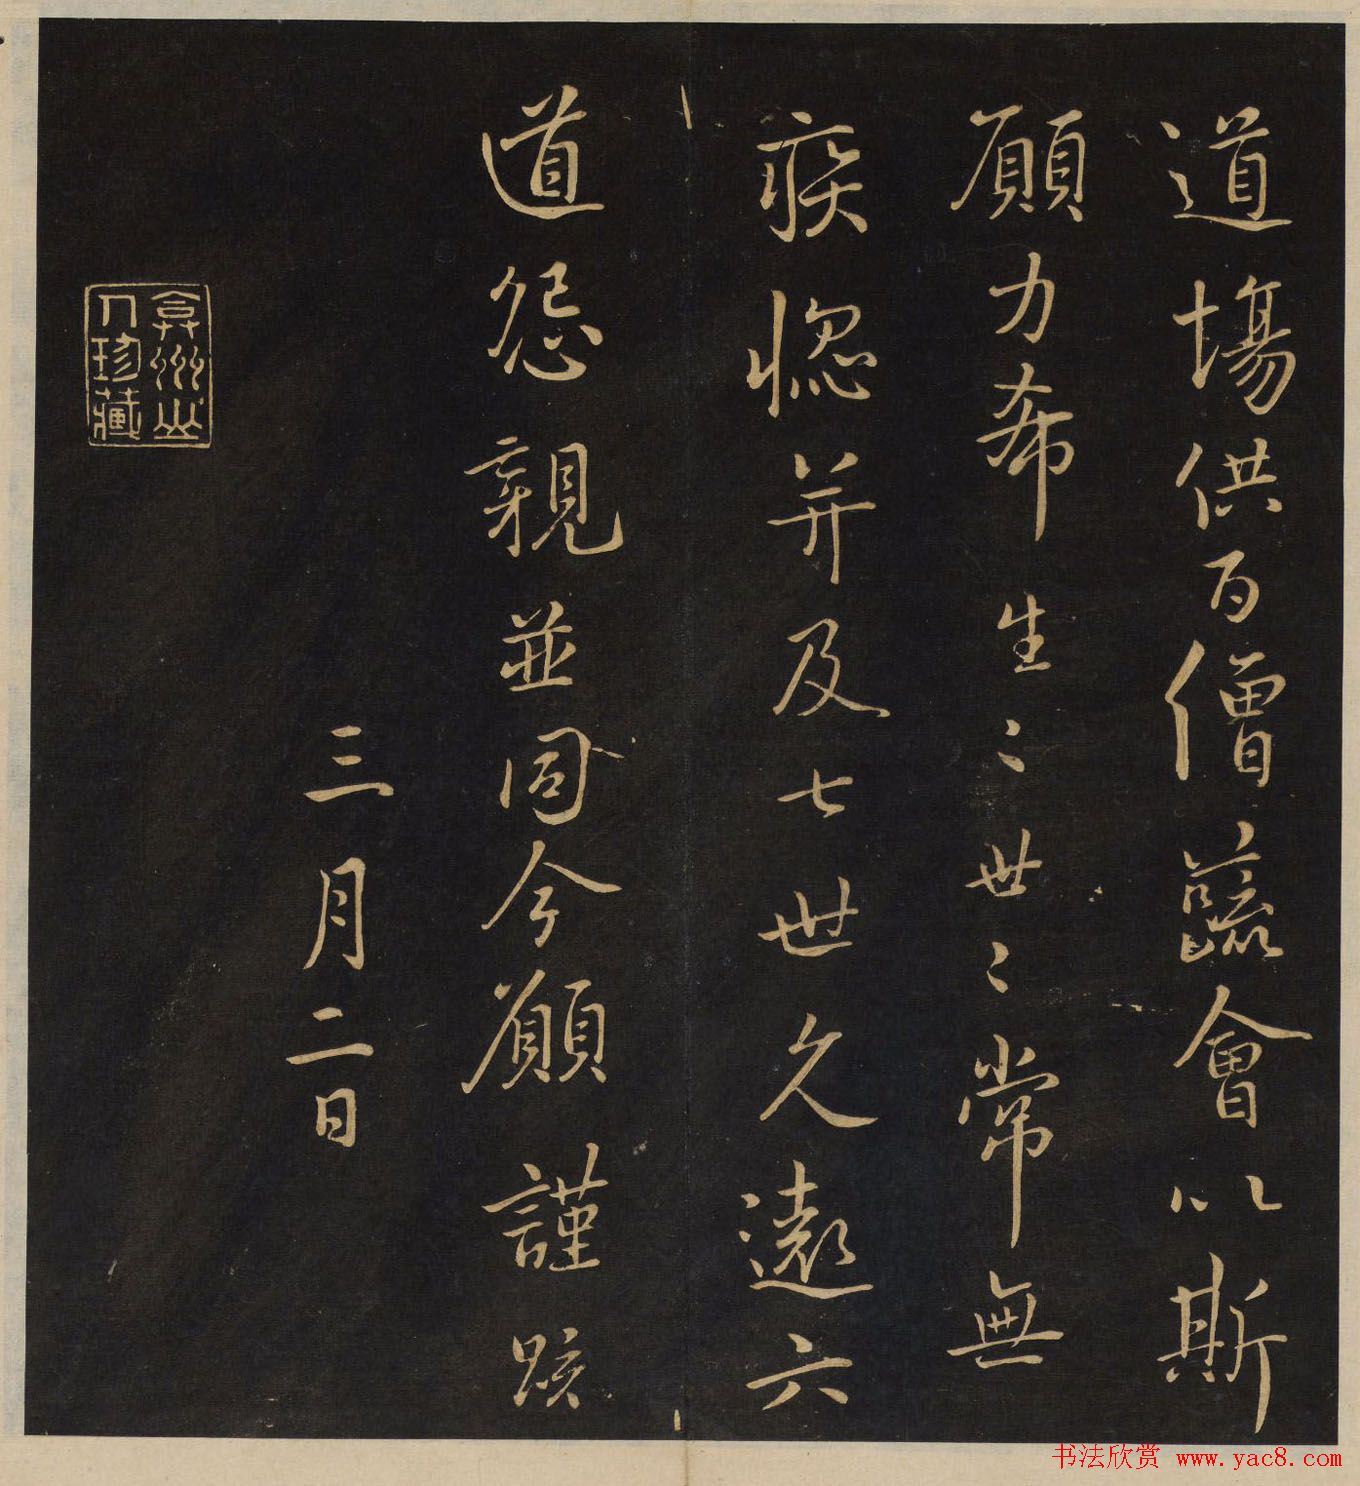 道場供百僧蔬會以斯
願力希生〻世〻常無
疾惱并及七世久遠六
道怨親並同今願謹疏
三月二日
弇州山人珍藏
书法欣赏 www.yac8.com